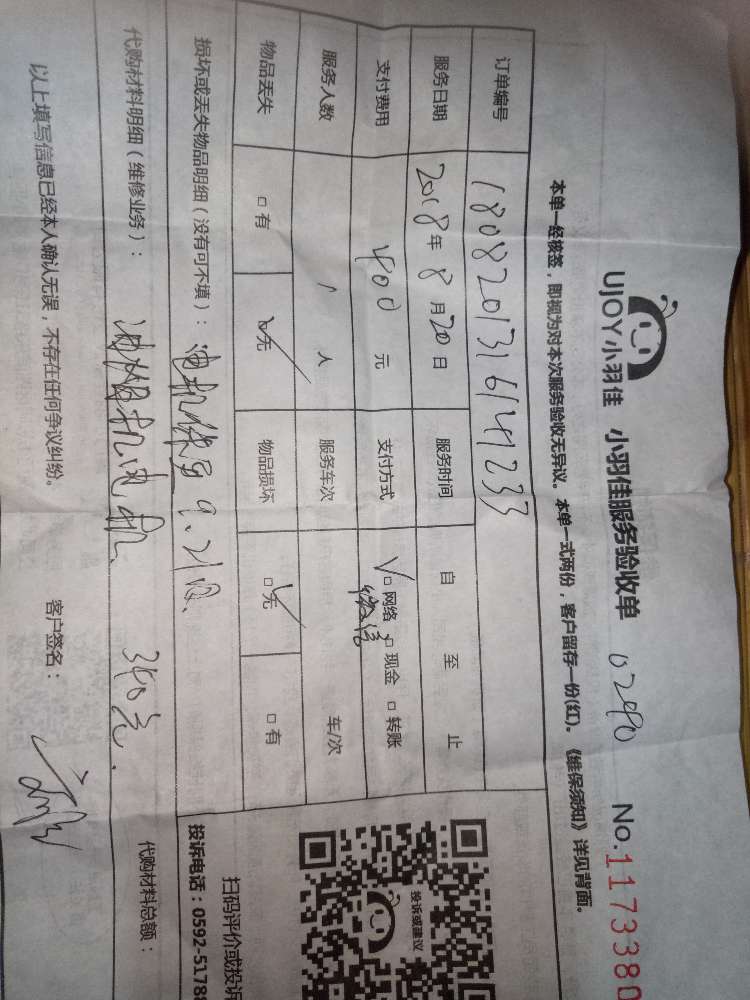 UJOY小羽佳 小羽佳服务验收单 0290 No.1173380
本单一经核签，即视为对本次服务验收无异议。本单一式两份，客户留存一份(红)。《维保须知》详见背面。
订单编号 180820131614233
服务日期 2018年8月20日 服务时间 自 至 止
支付费用 400元 支付方式 √□网络 □现金 □转账
微信
服务人数 1人 服务车次 车/次
物品丢失 □有 □无 物品损坏 □无 □有
损坏或丢失物品明细（没有可不填）： 电机 9.21
代购材料明细（维修业务）： 油烟机电机 340元. 代购材料总额：
以上填写信息已经本人确认无误，不存在任何争议纠纷。 客户签名：
投诉或建议
扫码评价或投诉
投诉电话：0592-5178